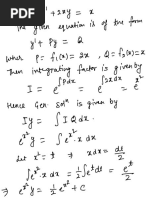 y' + 2xy = x
The given equation is of the form
y' + Py = Q
Where P = f₁(x) = 2x, Q = f₂(x) = x
Then integrating factor is given by
I = e^∫Pdx = e^∫2xdx = e^x²
Hence Gen. solⁿ is given by
Iy = ∫ I Q dx.
e^x² y = ∫ e^x² x dx.
Let x² = t ⇒ x dx = dt/2
∫ e^x² x dx = 1/2 ∫ e^t dt = e^t/2
⇒ e^x² y = 1/2 e^x² + C